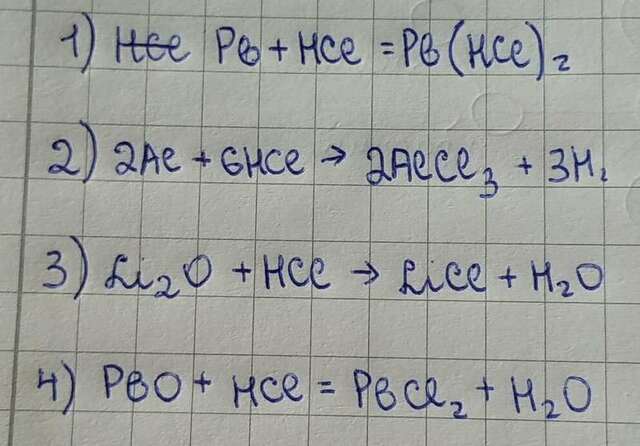 1) HCl Pb + HCl = Pb(HCl)₂
2) 2Al + 6HCl → 2AlCl₃ + 3H₂
3) Li₂O + HCl → LiCl + H₂O
4) PbO + HCl = PbCl₂ + H₂O